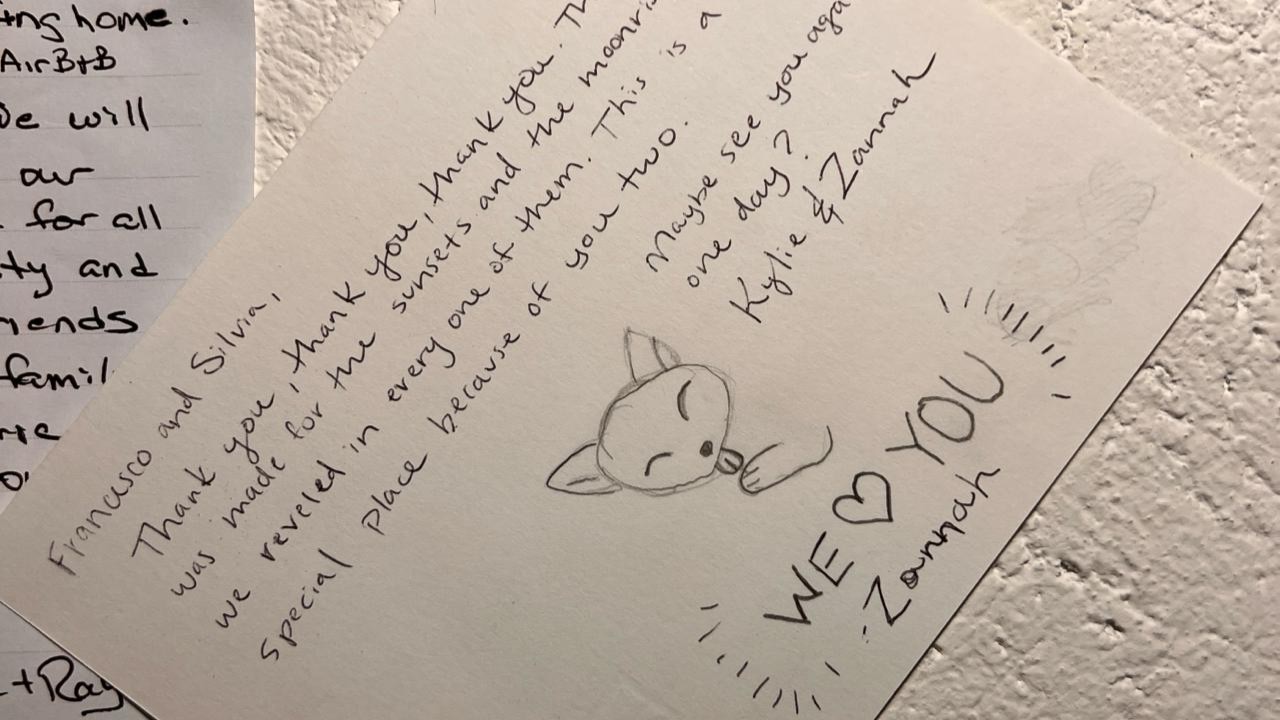 home.
AirB+B
We will
our
for all
and
Francisco and Silvia,
Thank you, thank you, thank you, thank you.
was made for the sunsets and the
we reveled in every one of them. This is a
special place because of you two.
Maybe see you
one day?
Kylie & Zannah
WE ♡ YOU
-Zannah
+Ray